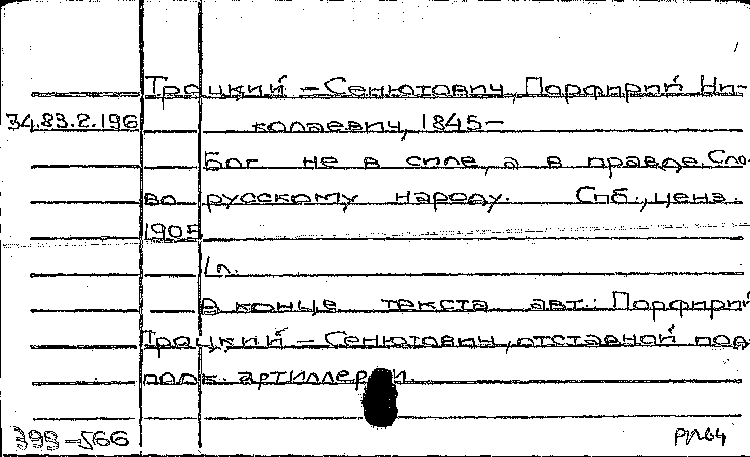 Троцкий – Сенютович, Порфирий Ни-
34.83.2.196 колаевич, 1845–
Бог не в силе, а в правде. Сло-
во русскому народу. Спб., ценз.
1905
1 л.
В конце текста авт.: Порфирий
Троцкий – Сенютович, отставной под-
полк. артиллерии.
399-566 РЛ64